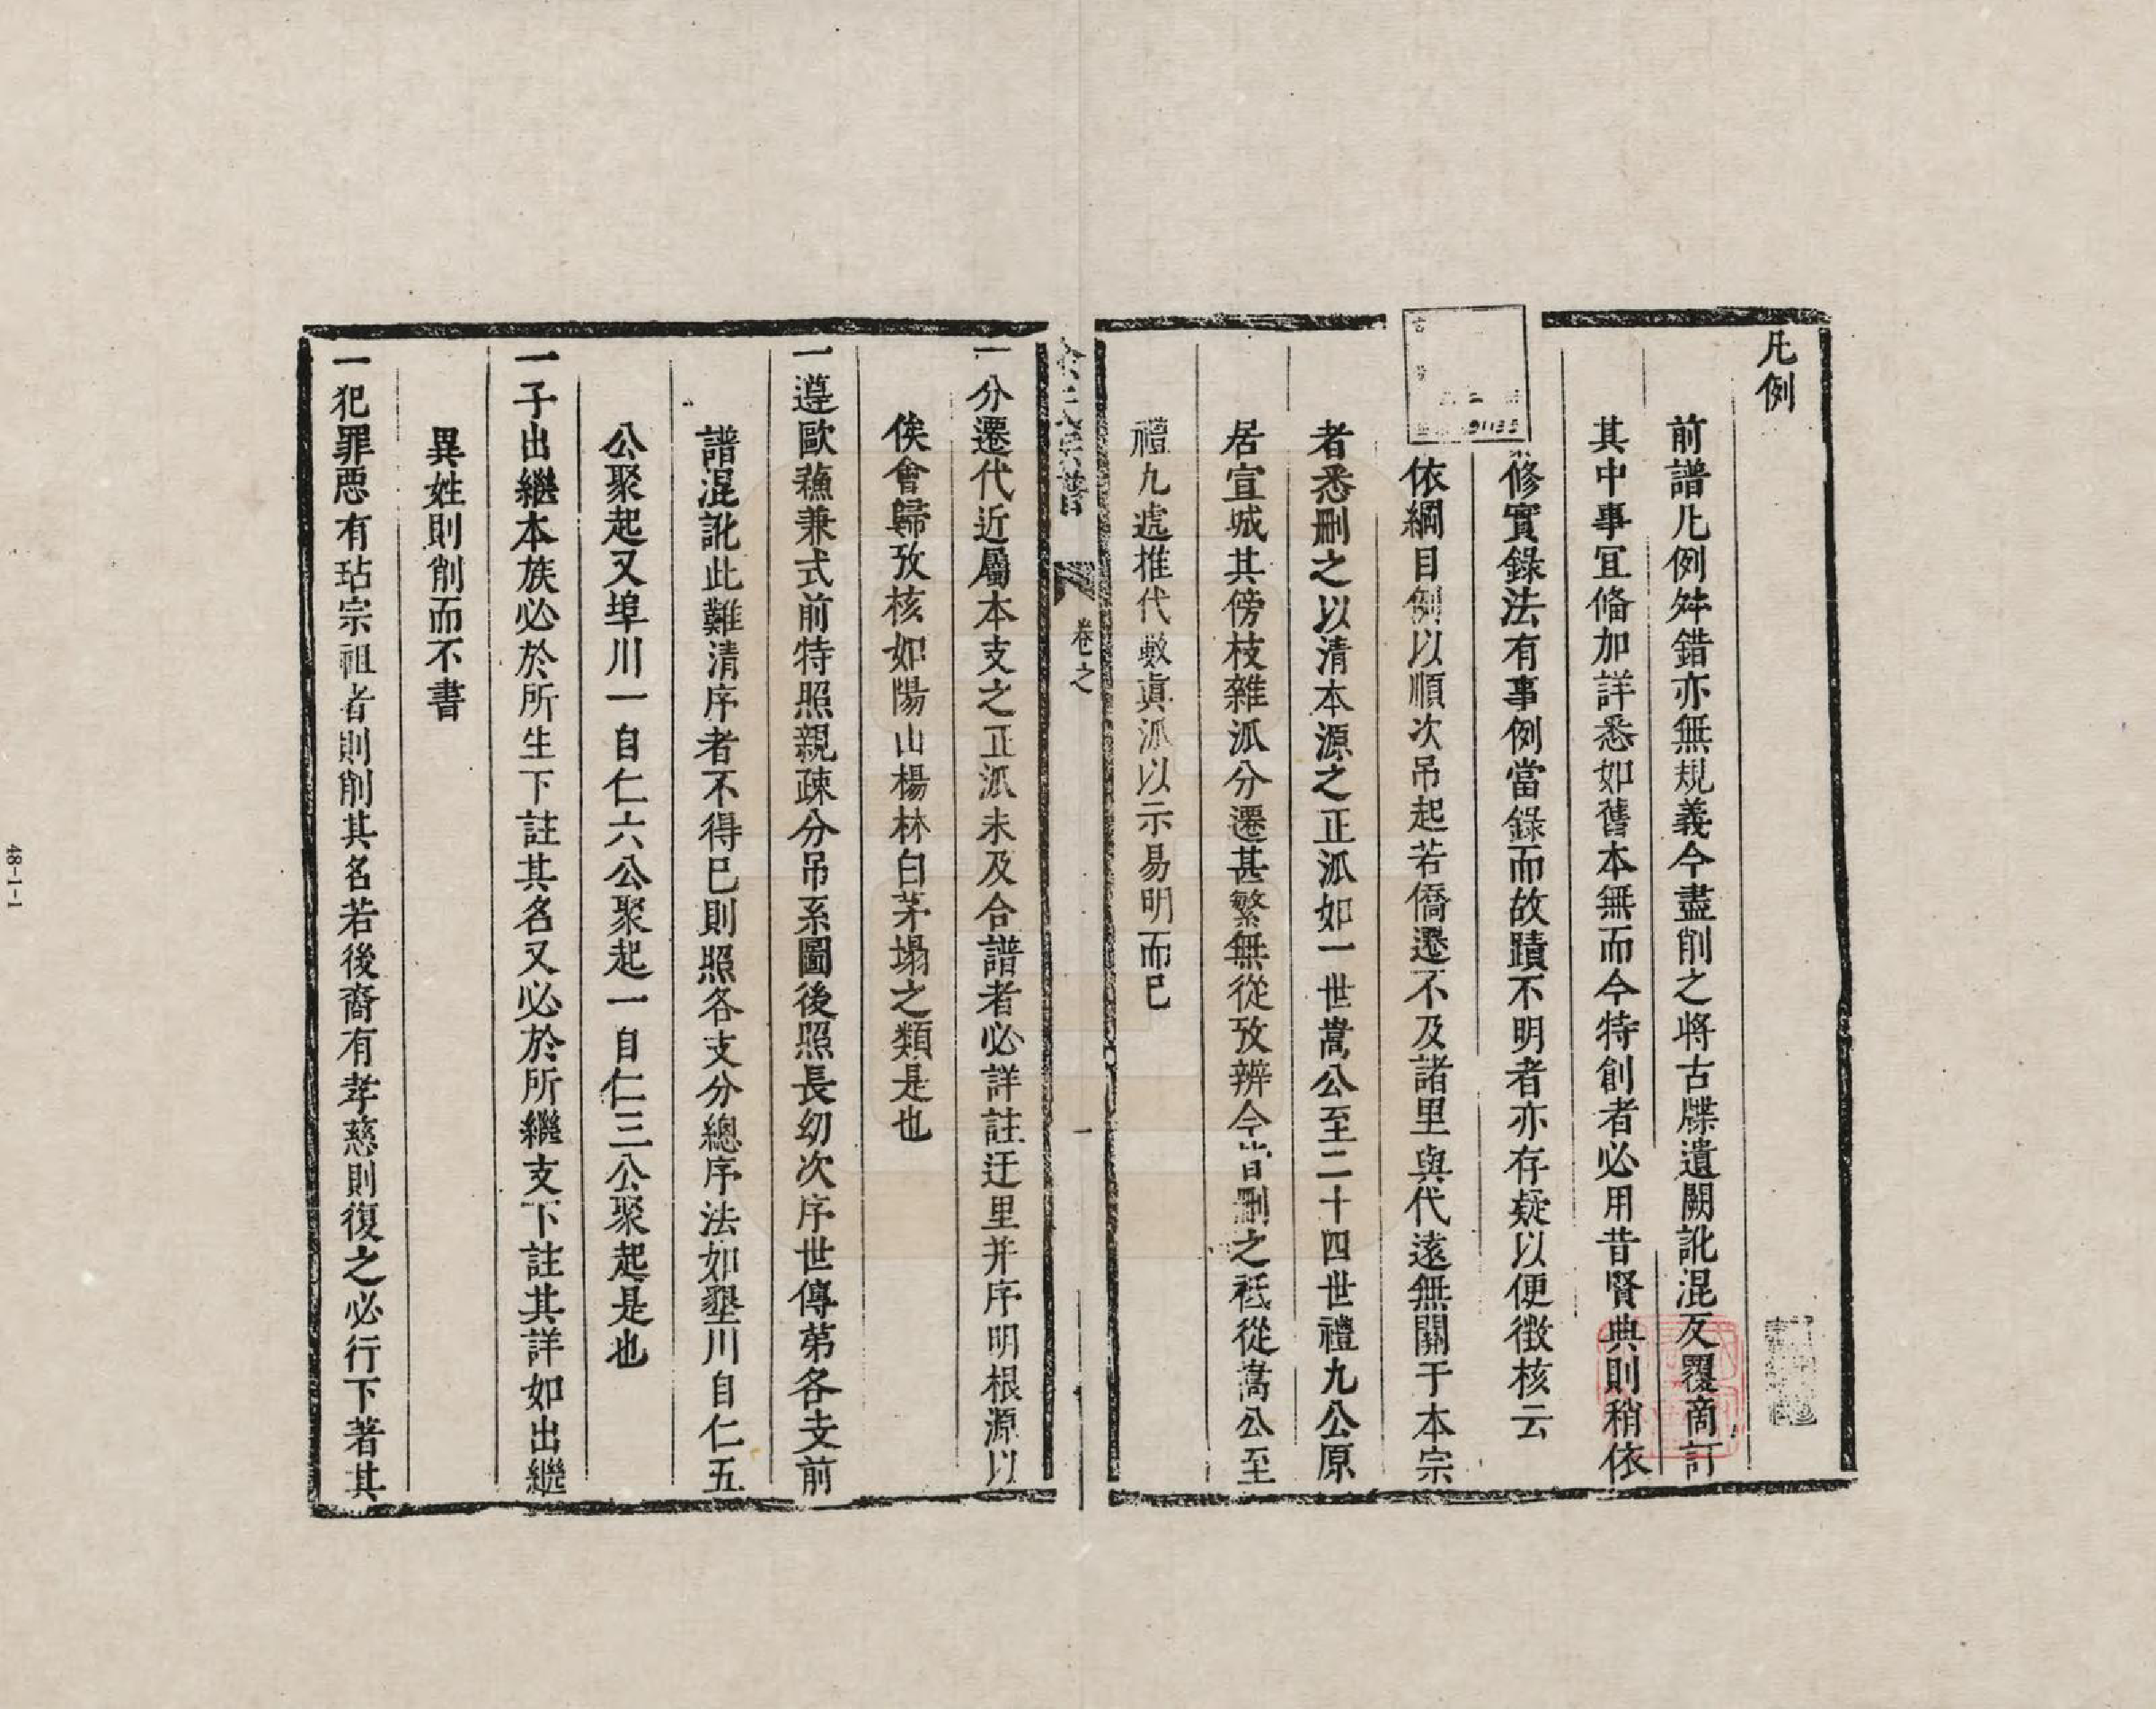 凡例
前譜凡例舛錯亦無規義今盡削之將古牒遺闕訛混反覆啇訂
其中事宜俻加詳悉如舊本無而今特創者必用昔賢典則稍依
修實錄法有事例當錄而故蹟不明者亦存疑以便徵核云
依綱目例以順次吊起若僑遷不及諸里與代遠無關于本宗
者悉刪之以清本源之正派如一世嵩公至二十四世禮九公原
居宣城其傍枝雜派分遷甚繁無從攷辨今皆刪之祗從嵩公至
禮九處推代數眞派以示易明而已
氏宗譜
卷之
一
一分遷代近屬本支之正派未及合譜者必詳註迁里并序明根源以
俟會歸攷核如陽山楊林白茅塌之類是也
一遵歐蘓兼式前特照親疎分吊系圖後照長幼次序世傳第各支前
譜混訛此難清序者不得已則照各支分總序法如壂川自仁五
公聚起又埠川一自仁六公聚起一自仁三公聚起是也
一子出繼本族必於所生下註其名又必於所繼支下註其詳如出繼
異姓則削而不書
一犯罪惡有玷宗祖者則削其名若後裔有孝慈則復之必行下著其
48-1-1